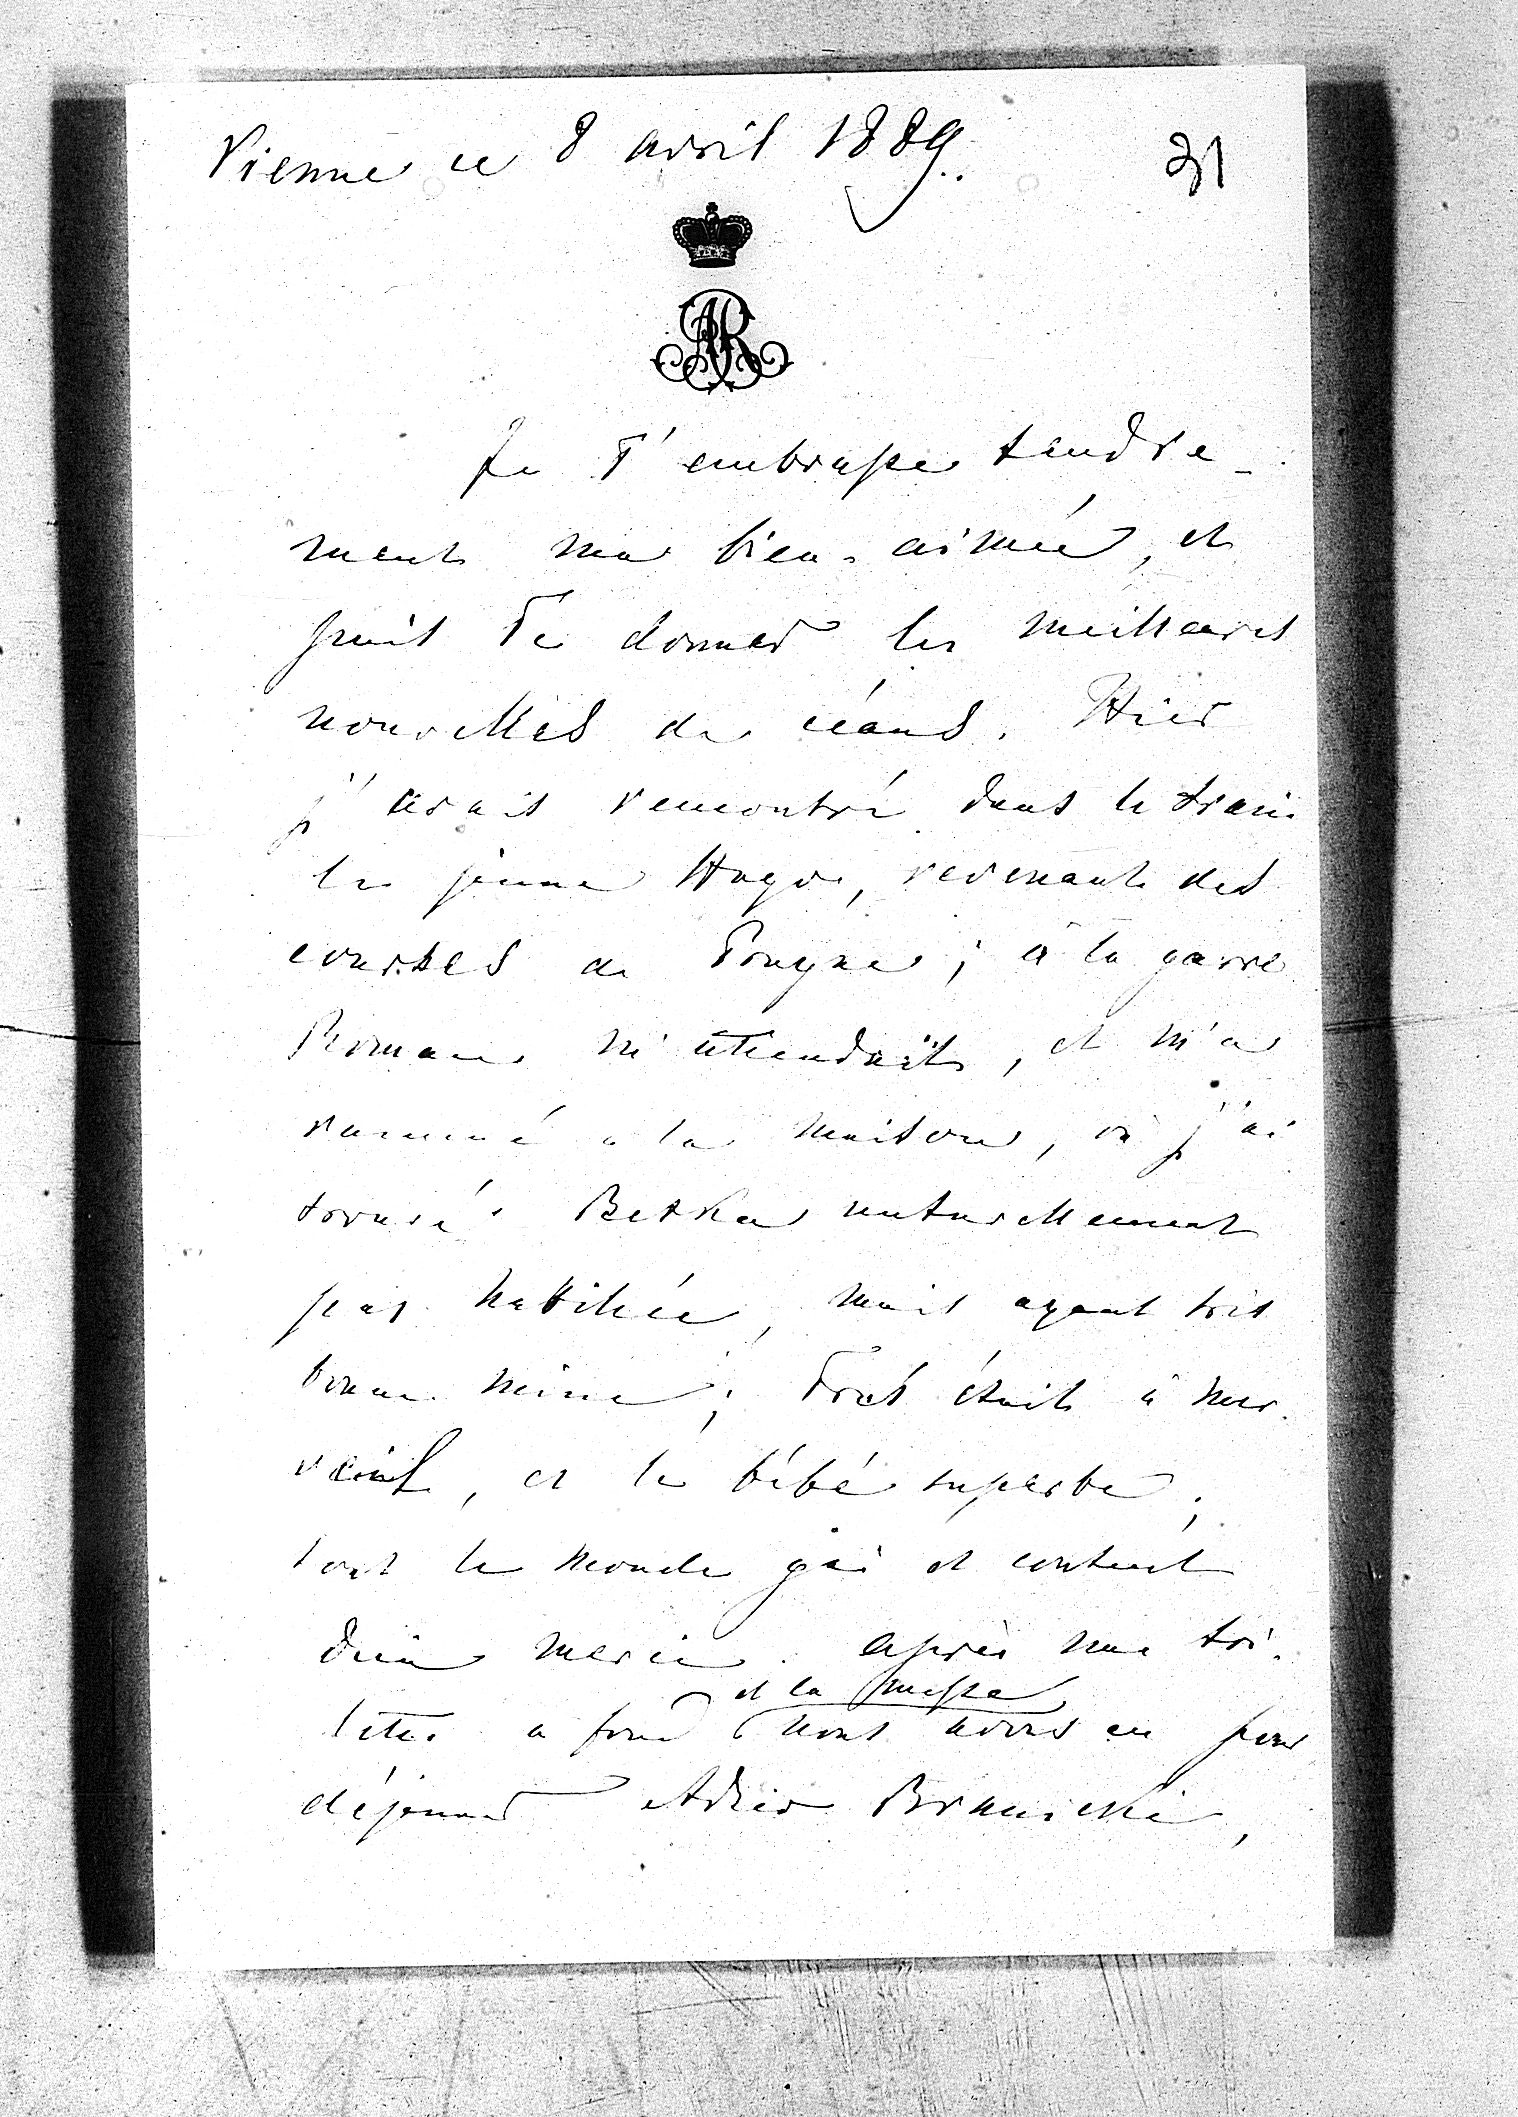 Vienne ce 8 avril 1889.
31
AR
Je t'embrasse tendre-
ment ma bien-aimée, et
puis te donner les meilleures
nouvelles de céans. Hier
j'avais rencontré dans le train
le jeune Hugo, revenant des
courses de ; à la garre
Roman m'attendait, et m'a
ramené à la maison, où j'ai
trouvé Betka naturellement
pas habillée, mais ayant très
bonne mine; était à mer-
veille, et le bébé superbe;
tout le monde gai et content
Dieu merci. Après une toi-
lette à fond et la messe nous avons eu pour
déjeuner Branicki,